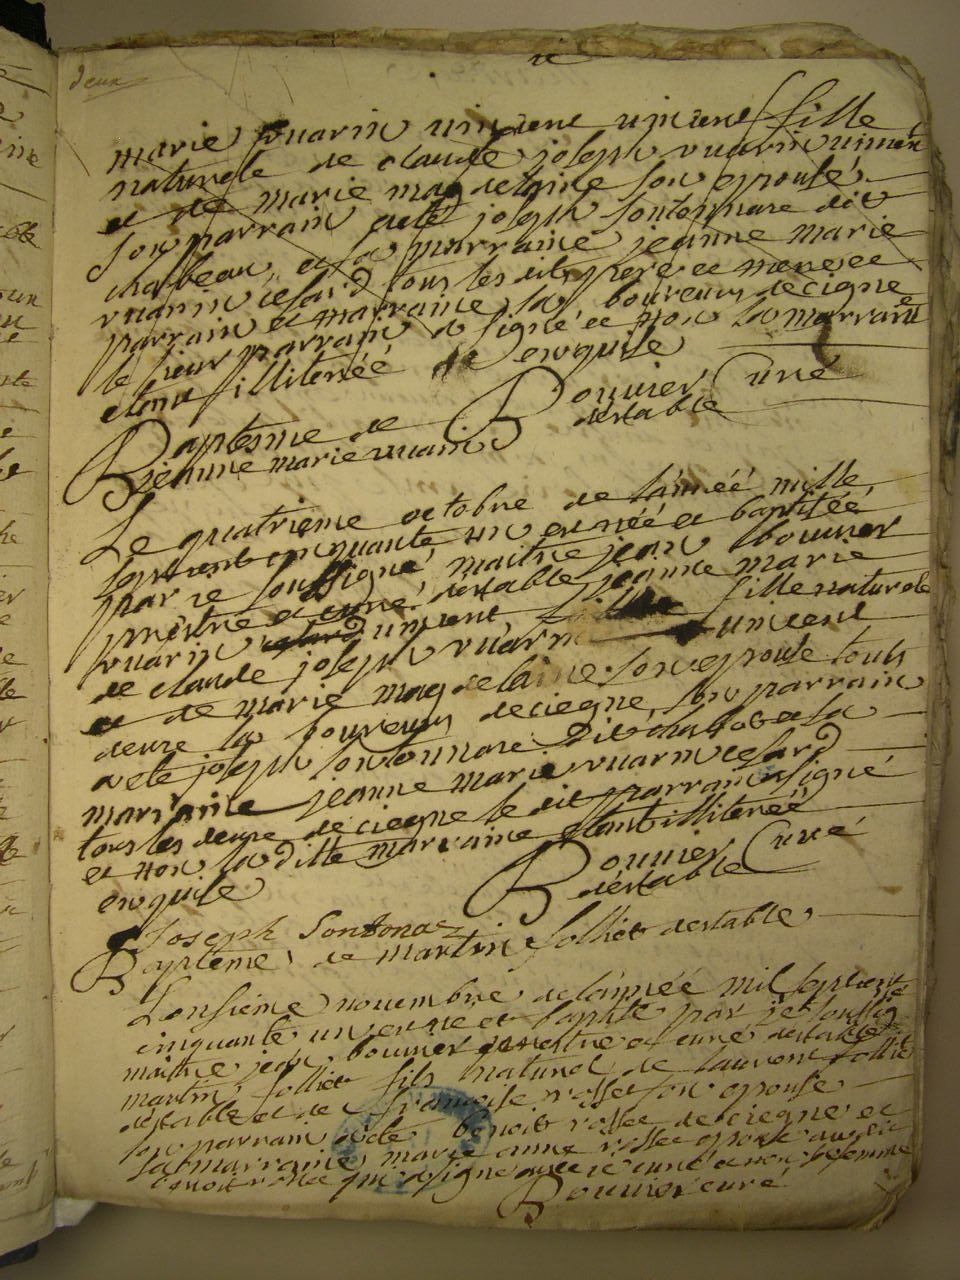 deux
marie vuarin vincent vincent fille
naturele de claude joseph vuarin vincent
et de marie magdelaine son epouse
son parrain a eté joseph sontonnare dit
chabeau, et sa marraine jeanne marie
vuarin cesard tous les dits pere et mere et
parrain et marraine la boureur de ciegne
le sieur parrain a signé et non la marraine
etant illiterée de ce enquise
Bouvier Curé
destable
Baptesme de
jeanne marie vuarin
Le quatrieme octobre de l'année mille
septcent cinquante un est née et baptisée
par je soussigné maitre jean bouvier
prestre et curé destable jeanne marie
vuarin vincent fille naturele
de claude joseph vuarin vincent
et de marie magdelaine son epouse touts
deux la boureurs de ciegne, son parrain
a eté joseph sontonnare dit chabot et sa
marraine jeanne marie vuarin cesard
tous les deux de ciegne le dit parrain a signé
et non la ditte marraine etant illiterée
enquise
Bouvier Curé
destable
Joseph Sontonaz
Bapteme de martin folliet destable
L'onsieme novembre de l'année mil septcent
cinquante un est né et baptisé par je soussigné
maitre jean bouvier prestre et curé destable
martin folliet fils naturel de laurent folliet
destable et de françoise rosset son epouse
son parrain a eté benoit rosset de ciegne et
sa marraine marie anne rosset epouse audit
benoit rosset qui a signé avec je curé et non sa femme
Bouvier curé